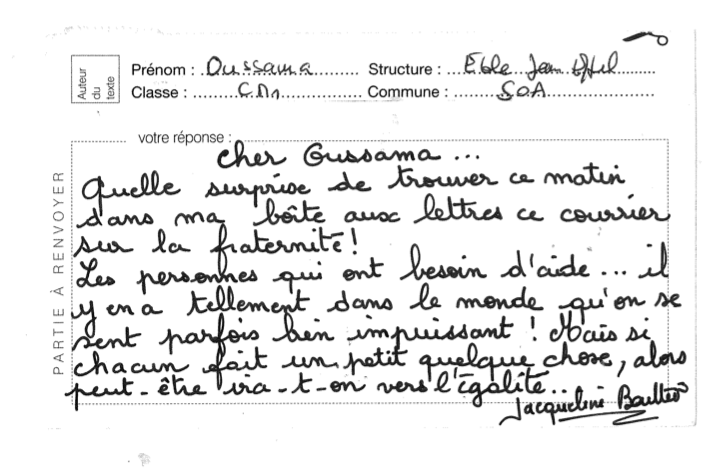 Auteur
du
texte
Prénom : Oussama Structure : Ecole Jean Effel
Classe : CM1 Commune : SOA
votre réponse :
PARTIE À RENVOYER
cher Oussama ...
Quelle surprise de trouver ce matin
dans ma boîte aux lettres ce courrier
sur la fraternité!
Les personnes qui ont besoin d'aide... il
y en a tellement dans le monde qu'on se
sent parfois bien impuissant ! Mais si
chacun fait un petit quelque chose, alors
peut-être ira-t-on vers l'égalité...
Jacqueline